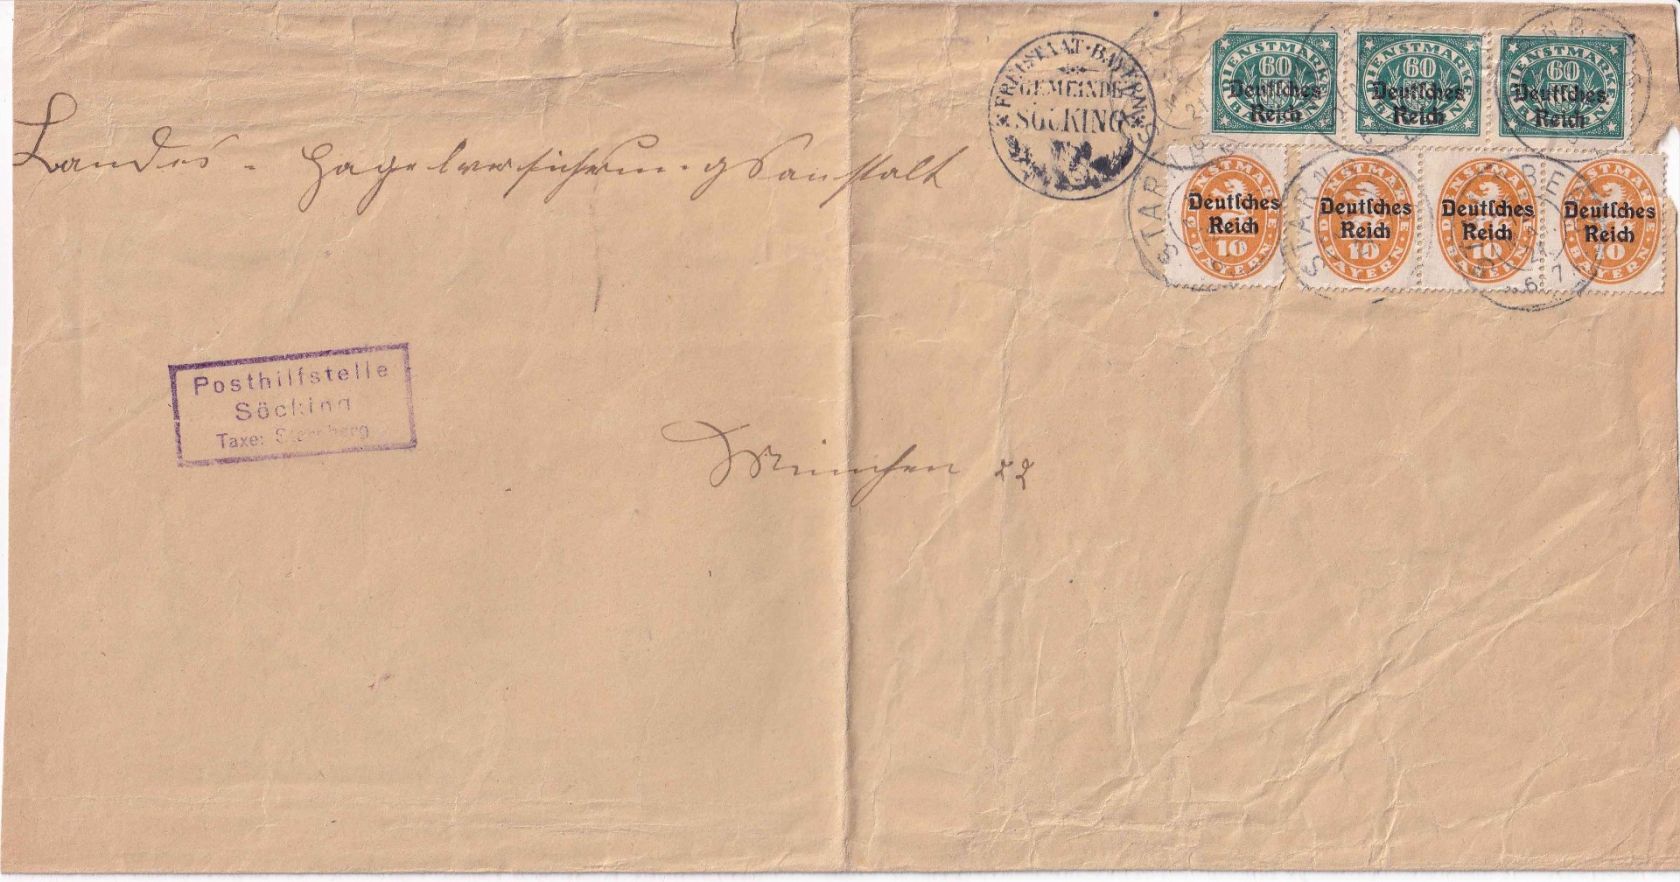 FREISTAAT · BAYERN
GEMEINDE
SÖCKING
DIENSTMARKE
60
BAYERN
Deutsches
Reich
DIENSTMARKE
60
BAYERN
Deutsches
Reich
DIENSTMARKE
60
BAYERN
Deutsches
Reich
DIENSTMARKE
10
BAYERN
Deutsches
Reich
DIENSTMARKE
10
BAYERN
Deutsches
Reich
DIENSTMARKE
10
BAYERN
Deutsches
Reich
DIENSTMARKE
10
BAYERN
Deutsches
Reich
STARNBERG
Landes-Hagelversicherungsanstalt
Posthilfstelle
Söcking
Taxe: Starnberg
München 22